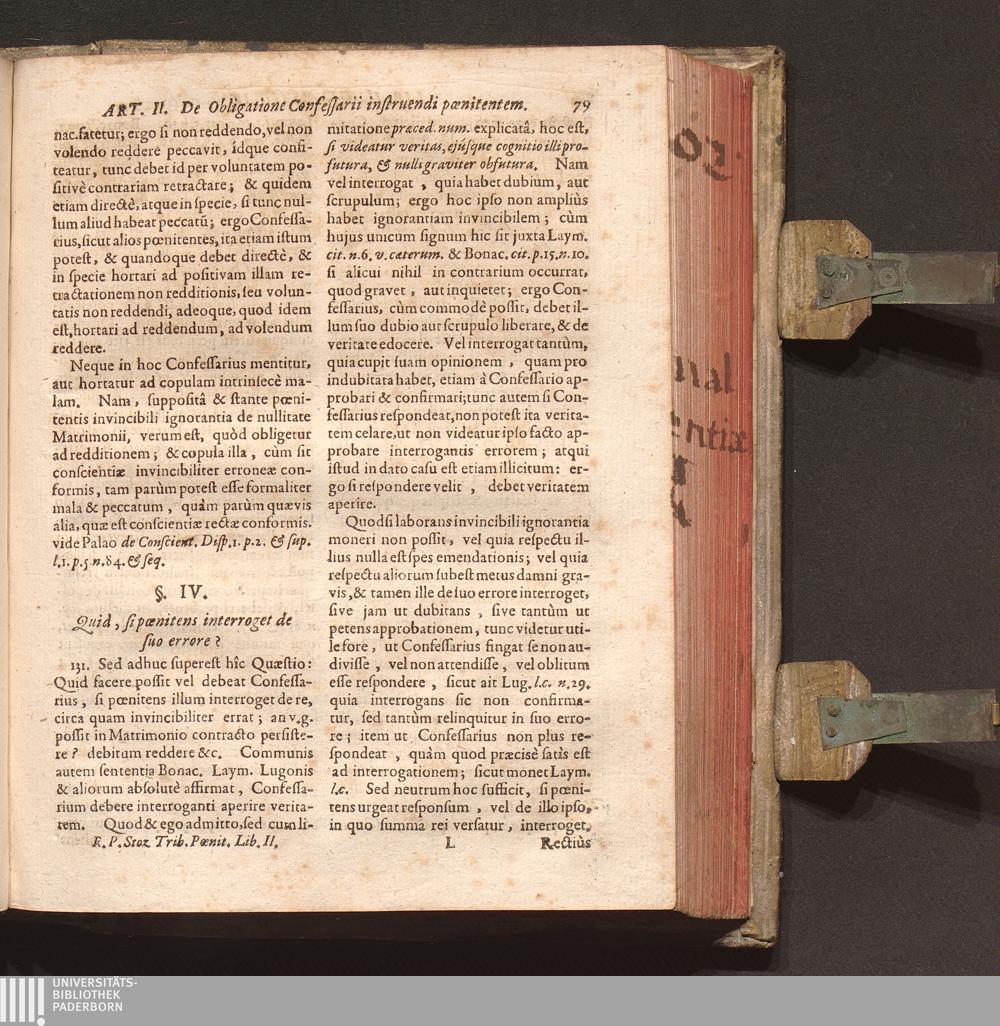 ART. II. De Obligatione Confessarii instruendi pœnitentem. 79
nac. fatetur; ergo si non reddendo, vel non
volendo reddere peccavit, idque confi-
teatur, tunc debet id per voluntatem po-
sitivè contrariam retractare; & quidem
etiam directè, atque in specie, si tunc nul-
lum aliud habeat peccatũ; ergo Confessa-
rius, sicut alios pœnitentes, ita etiam istum
potest, & quandoque debet directè, &
in specie hortari ad positivam illam re-
tractationem non redditionis, seu volun-
tatis non reddendi, adeoque, quod idem
est, hortari ad reddendum, ad volendum
reddere.
Neque in hoc Confessarius mentitur,
aut hortatur ad copulam intrinsecè ma-
lam. Nam, suppositâ & stante pœni-
tentis invincibili ignorantia de nullitate
Matrimonii, verum est, quòd obligetur
ad redditionem; & copula illa, cùm sit
conscientiæ invincibiliter erroneæ con-
formis, tam parùm potest esse formaliter
mala & peccatum, quàm parùm quævis
alia, quæ est conscientiæ rectæ conformis.
vide Palao de Conscient. Disp. 1. p. 2. & sup.
l. 1. p. 5. n. 84. & seq.
§. IV.
Quid, si pœnitens interroget de
suo errore?
131. Sed adhuc superest hîc Quæstio:
Quid facere possit vel debeat Confessa-
rius, si pœnitens illum interroget de re,
circa quam invincibiliter errat; an v.g.
possit in Matrimonio contracto persiste-
re? debitum reddere &c. Communis
autem sententia Bonac. Laym. Lugonis
& aliorum absolutè affirmat, Confessa-
rium debere interroganti aperire verita-
tem. Quod & ego admitto, sed cum li-
R. P. Stoz Trib. Pœnit. Lib. II.
mitatione præced. num. explicatâ, hoc est,
si videatur veritas, ejúsque cognitio illi pro-
futura, & nulli graviter obfutura. Nam
vel interrogat, quia habet dubium, aut
scrupulum; ergo hoc ipso non ampliùs
habet ignorantiam invincibilem; cùm
hujus unicum signum hic sit juxta Laym.
cit. n. 6. v. cæterum. & Bonac. cit. p. 15. n. 10.
si alicui nihil in contrarium occurrat,
quod gravet, aut inquietet; ergo Con-
fessarius, cùm commodè possit, debet il-
lum suo dubio aut scrupulo liberare, & de
veritate edocere. Vel interrogat tantùm,
quia cupit suam opinionem, quam pro
indubitata habet, etiam à Confessario ap-
probari & confirmari; tunc autem si Con-
fessarius respondeat, non potest ita verita-
tem celare, ut non videatur ipso facto ap-
probare interrogantis errorem; atqui
istud in dato casu est etiam illicitum: er-
go si respondere velit, debet veritatem
aperire.
Quodsi laborans invincibili ignorantia
moneri non possit, vel quia respectu il-
lius nulla est spes emendationis; vel quia
respectu aliorum subest metus damni gra-
vis, & tamen ille de suo errore interroget,
sive jam ut dubitans, sive tantùm ut
petens approbationem, tunc videtur uti-
le fore, ut Confessarius fingat se non au-
divisse, vel non attendisse, vel oblitum
esse respondere, sicut ait Lug. l.c. n. 29.
quia interrogans sic non confirma-
tur, sed tantùm relinquitur in suo erro-
re; item ut Confessarius non plus re-
spondeat, quàm quod præcisè satìs est
ad interrogationem; sicut monet Laym.
l.c. Sed neutrum hoc sufficit, si pœni-
tens urgeat responsum, vel de illo ipso,
in quo summa rei versatur, interroget.
L Rectiùs
oz.
nal
entiæ
UNIVERSITÄTS-
BIBLIOTHEK
PADERBORN